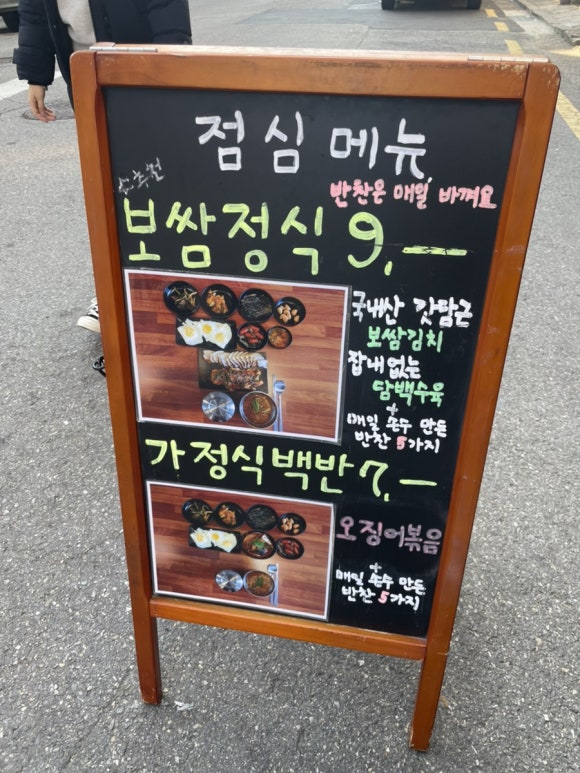 점심 메뉴
반찬은 매일 바껴요
강추천
보쌈정식 9,-
국내산 갓담근
보쌈김치
잡내없는
담백수육
+
매일 손수 만든
반찬 5가지
가정식백반 7,-
오징어볶음
+
매일 손수 만든
반찬 5가지